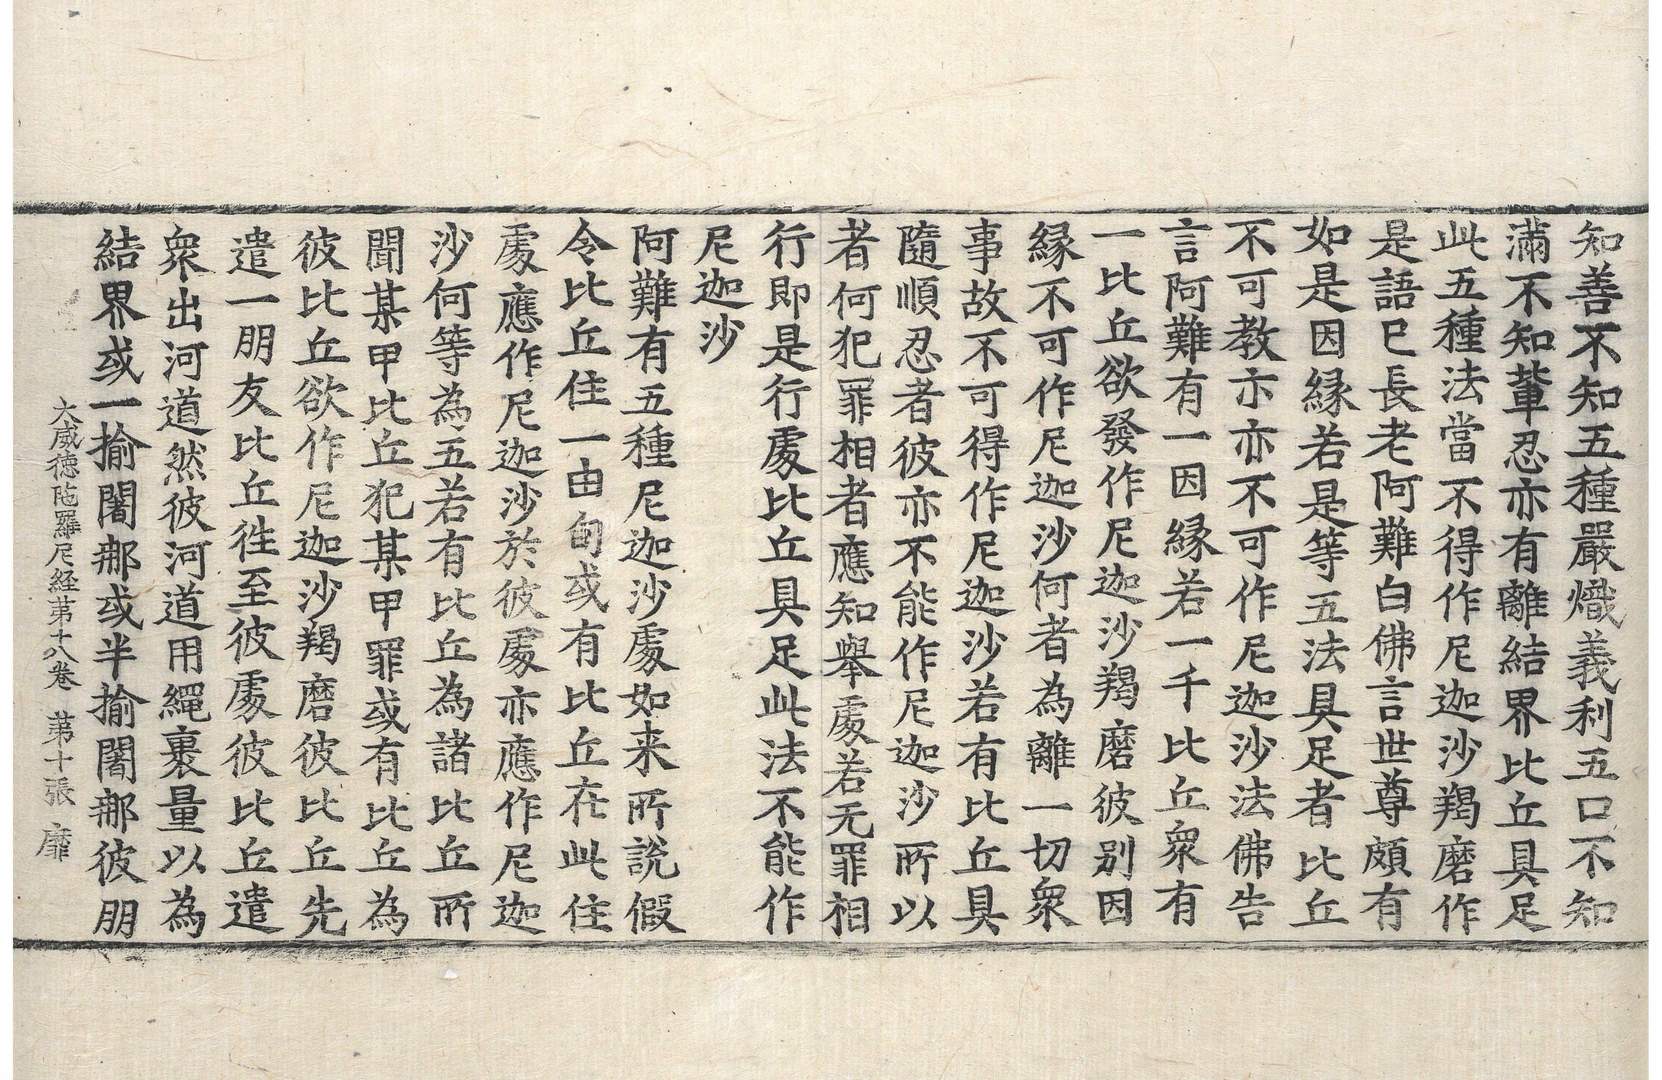 知善不知五種嚴熾義利五口不知
滿不知葷忍亦有離結界比丘具足
此五種法當不得作尼迦沙羯磨作
是語已長老阿難白佛言世尊頗有
如是因緣若是等五法具足者比丘
不可教亦亦不可作尼迦沙法佛告
言阿難有一因緣若一千比丘衆有
一比丘欲發作尼迦沙羯磨彼別因
緣不可作尼迦沙何者為離一切衆
事故不可得作尼迦沙若有比丘具
隨順忍者彼亦不能作尼迦沙所以
者何犯罪相者應知舉處若无罪相
行即是行處比丘具足此法不能作
尼迦沙
阿難有五種尼迦沙處如来所說假
令比丘住一由旬或有比丘在此住
處應作尼迦沙於彼處亦應作尼迦
沙何等為五若有比丘為諸比丘所
聞某甲比丘犯某甲罪或有比丘為
彼比丘欲作尼迦沙羯磨彼比丘先
遣一朋友比丘徃至彼處彼比丘遣
衆出河道然彼河道用繩裹量以為
結界或一揄闍那或半揄闍那彼朋
大威德陁羅尼経苐十八卷 苐十張 靡